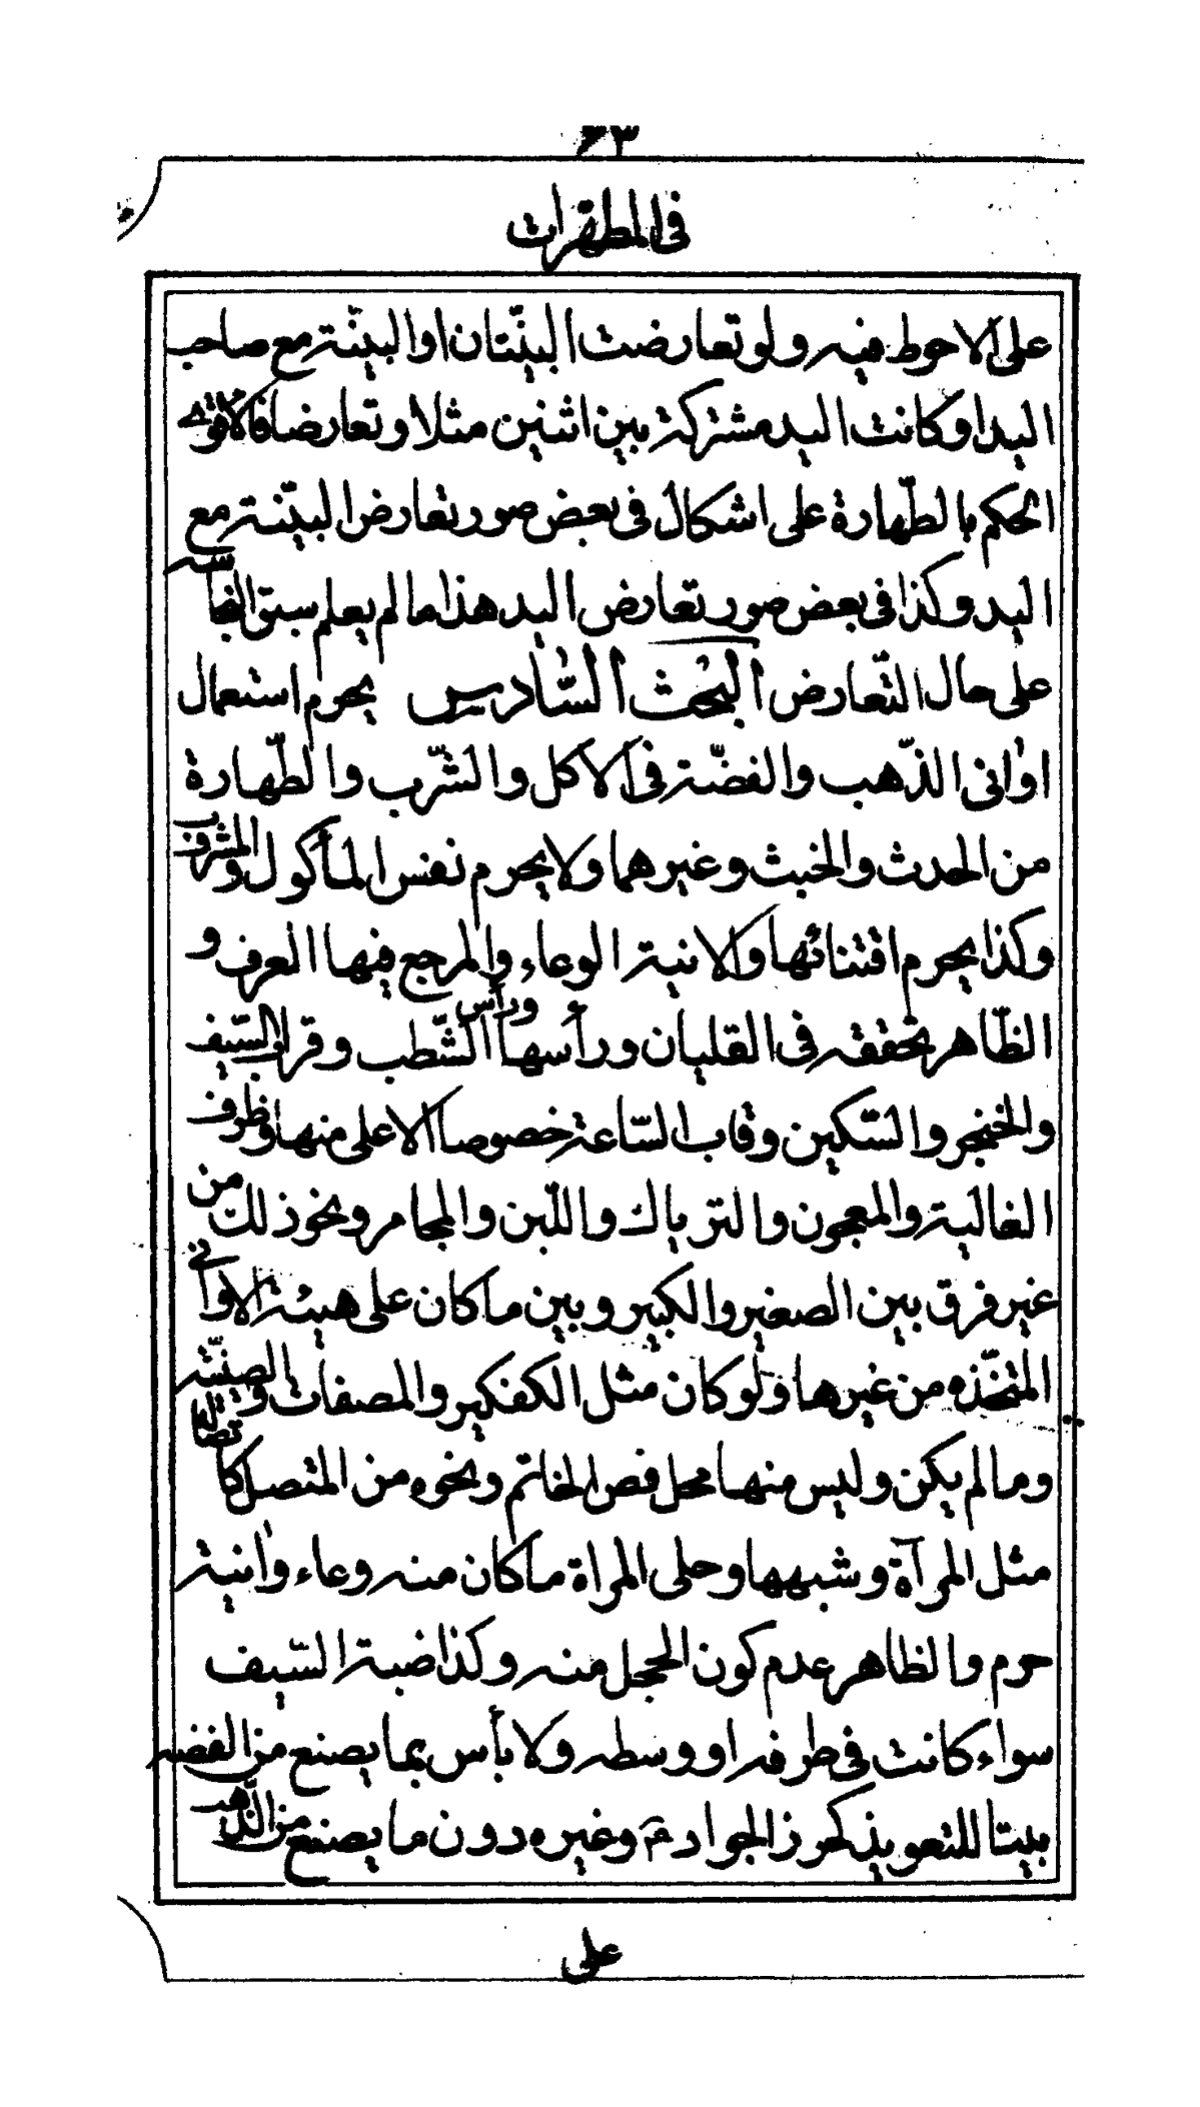 ٦٣
فى المطهرات
على الاحوط فيه ولو تعارضت البيّنتان او البيّنة مع صاحب
اليد او كانت اليد مشتركة بين اثنين مثلا وتعارضا فالاقوى
الحكم بالطّهارة على اشكال فى بعض صور تعارض البيّنة مع
اليد وكذا فى بعض صور تعارض اليد هذا ما لم يعلم سبق النجاسة
على حال التّعارض البحث السّادس يحرم استعمال
اوانى الذّهب والفضّة فى الاكل والشّرب والطّهارة
من الحدث والخبث وغيرهما ولا يحرم نفس المأكول والمشروب
وكذا يحرم اقتنائها والانية الوعاء والمرجع فيها العرف و
الظّاهر تحققه فى القليان ورأسها ورأس الشّطب وقراب السّيف
والخنجر والسّكين وقاب السّاعة خصوصا الاعلى منها وظروف
الغالية والمعجون والترياك واللّبن والمجامر ونحو ذلك من
غير فرق بين الصغير والكبير وبين ما كان على هيئة الاوانى
المتخّذه من غيرها ولو كان مثل الكفكير والمصفات والصينيّة
وما لم يكن وليس منها محل فص الخاتم ونحوه من المتصل كا تصاله
مثل المرآة وشبهها وحلى المراة ما كان منه وعاء وانية
حرم والظاهر عدم كون الحجل منه وكذا ضبة السّيف
سواء كانت فى طرفه او وسطه ولا بأس بما يصنع من الفضه
بيتا للتعويذ كحرز الجواد ع وغيره دون ما يصنع من الذّهب
على